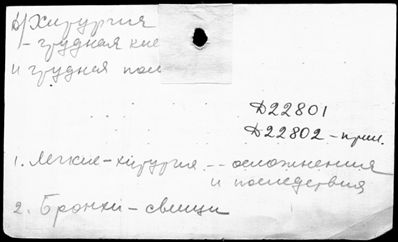 в/Хирургия
- грудная кле
и грудная пол
Д22801
Д22802 - прил.
1. Легкие - хирургия -- осложнения
и последствия
2. Бронхи - свищи